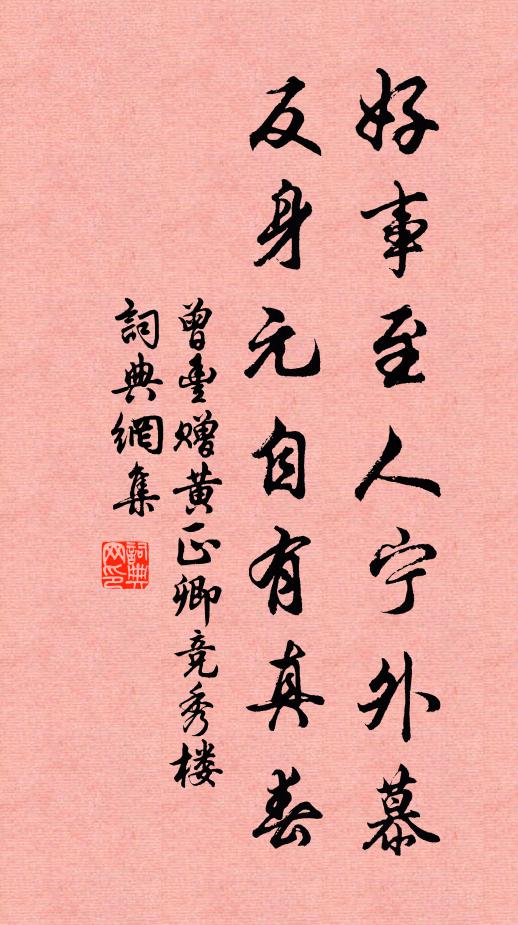 好事至人宁外慕
反身元自有真春
曾豐赠黄正卿竞秀楼
詞典網集
詞典网印